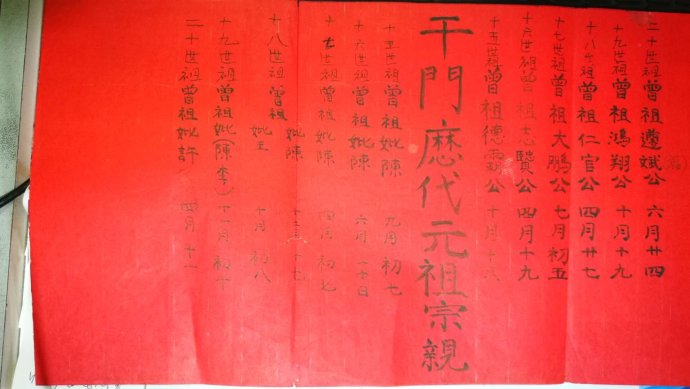 二十世祖曾祖遵娥公 六月廿四
十九世祖曾祖鴻翔公 十月十九
十八世祖曾祖仁官公 四月廿七
十七世祖曾祖大鵬公 七月初五
十六世祖曾祖志賢公 四月十九
十五世祖曾祖德 公 十月十八
干門歷代元祖宗親
十五世祖曾祖妣陳 九月初七
十六世祖曾祖妣陳 六月二十日
十七世祖曾祖妣陳 四月初七
妣陳 十二月十七
十八世祖曾祖妣王 十月初八
十九世祖曾祖妣(陳李) 十一月初十
二十世祖曾祖妣許 四月十一